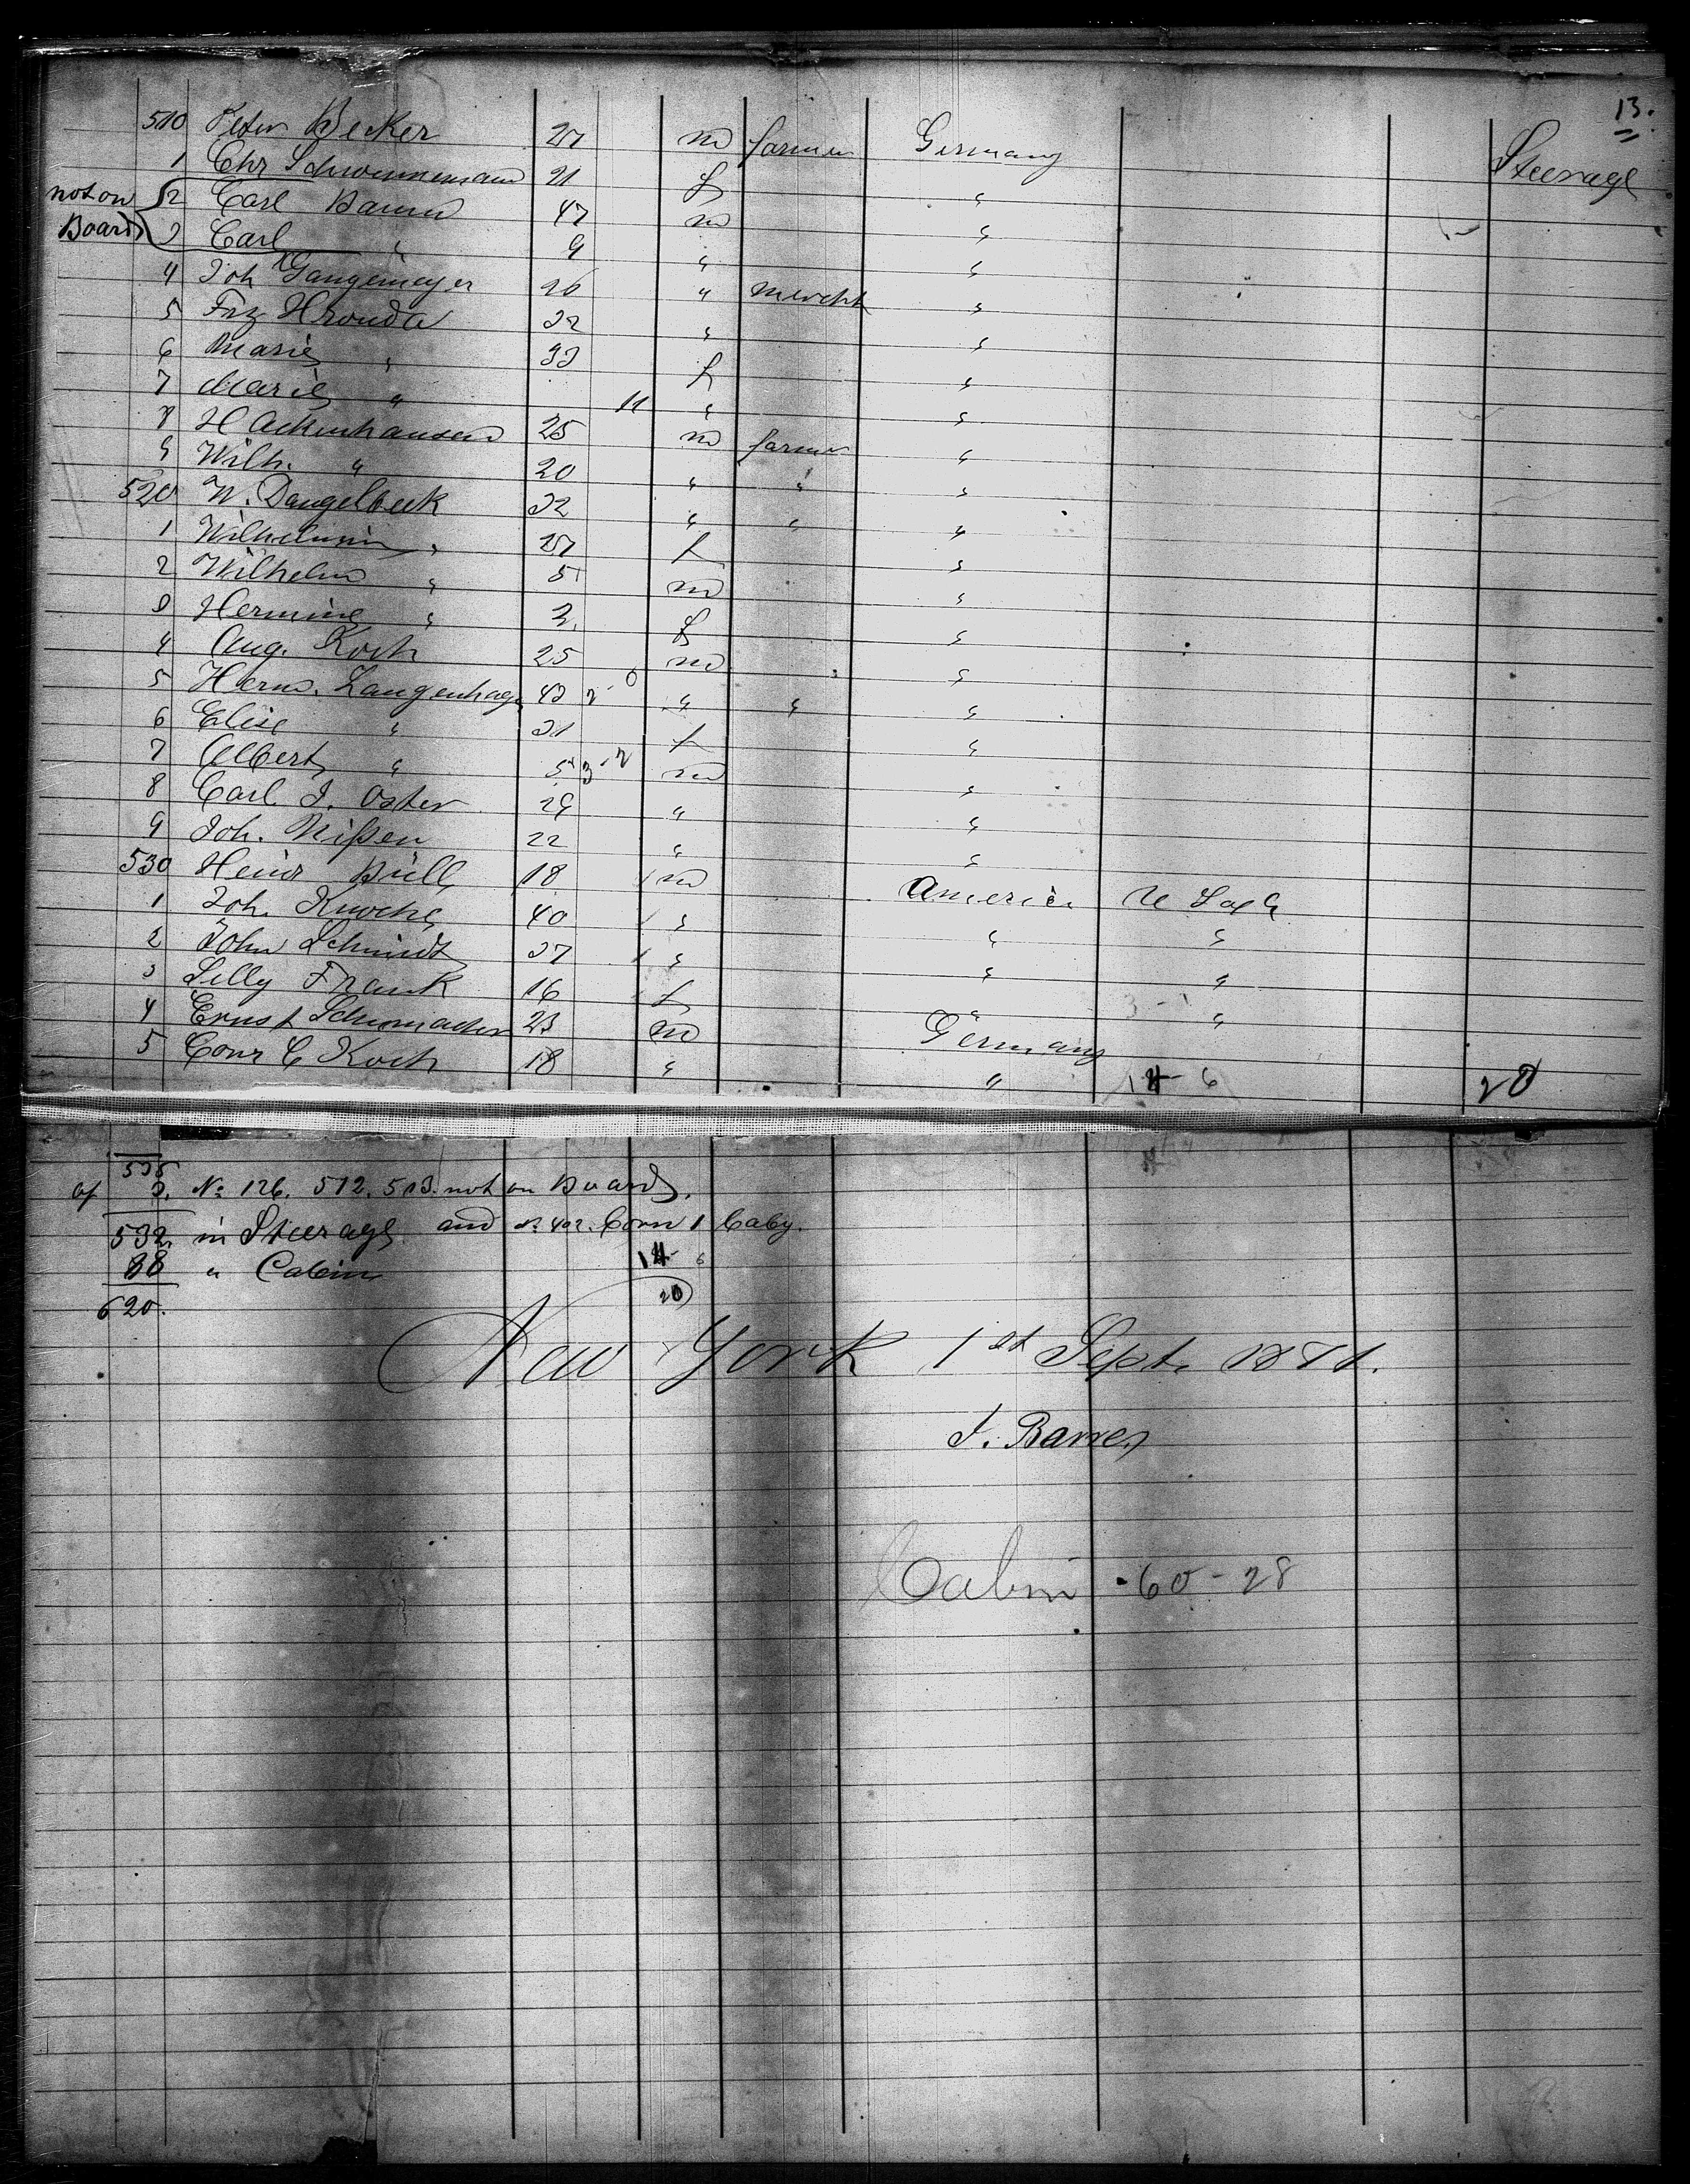 13.
510 Peter Becker 27 m farmer Germany Steerage
1 Chr Schwennemann 21 f "
not on Board { 2 Carl Baum 47 m "
3 Carl " 9 " "
4 Joh Gangemeyer 26 " mercht "
5 Frz Hronda 32 " "
6 Marie " 33 f "
7 Marie " 11 " "
8 H Achenhausen 25 m farmer "
9 Wilh. " 20 " " "
520 W. Dangelbeck 32 " " "
1 Wilhelmin " 27 f "
2 Wilhelm " 5 m "
3 Hermine " 3 f "
4 Aug. Koch 25 m "
5 Herm. Langenhagen 43 2-0 " " "
6 Elise " 31 f "
7 Albert " 5 3-2 m "
8 Carl J. Oster 29 " "
9 Joh. Nißen 22 " "
530 Heinr Büll 18 m America
1 Joh. Knoche 40 " " "
2 John Schmidt 37 " " "
3 Lilly Frank 16 f " "
4 Ernst Schumacher 23 m Germany
5 Conr C Koch 18 " " 14-6 20
535
of 3. No 126. 512. 513. not on Board.
532 in Steerage and born 1 baby.
88 " Cabin 14 6
620. 20
New York 1st Sept. 1881.
Cabin 60-28